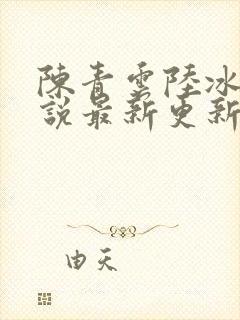 陳青雲陸冰
說最新更新
由天